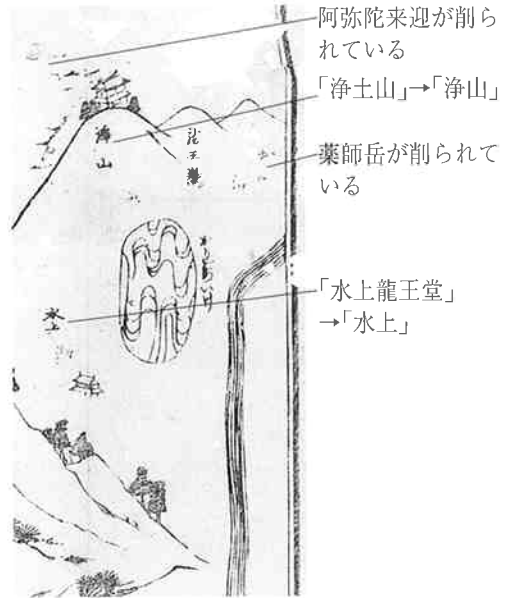 阿弥陀来迎が削ら
れている
「浄土山」→「浄山」
薬師岳が削られて
いる
「水上龍王堂」
→「水上」
浄山
水上